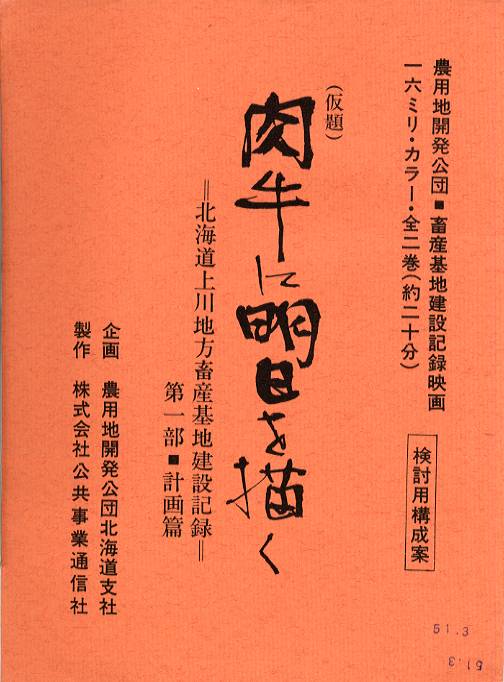 農用地開発公団■畜産基地建設記録映画
一六ミリ・カラー・全二巻(約二十分)
検討用構成案
(仮題)
肉牛に明日を描く
＝北海道上川地方畜産基地建設記録＝
第一部■計画篇
企画 農用地開発公団北海道支社
製作 株式会社公共事業通信社
51.3
51.3